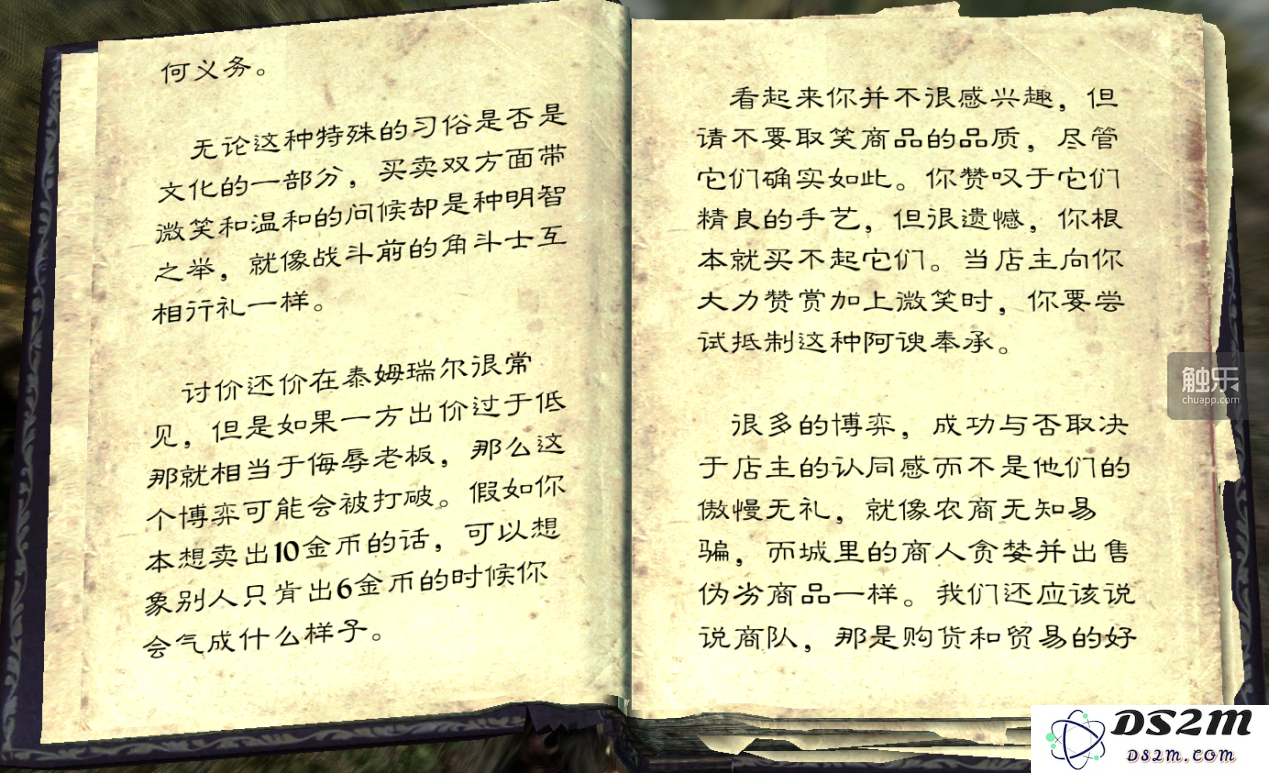 何义务。
无论这种特殊的习俗是否是
文化的一部分，买卖双方面带
微笑和温和的问候却是种明智
之举，就像战斗前的角斗士互
相行礼一样。
讨价还价在泰姆瑞尔很常
见，但是如果一方出价过于低
那就相当于侮辱老板，那么这
个博弈可能会被打破。假如你
本想卖出10金币的话，可以想
象别人只肯出6金币的时候你
会气成什么样子。
看起来你并不很感兴趣，但
请不要取笑商品的品质，尽管
它们确实如此。你赞叹于它们
精良的手艺，但很遗憾，你根
本就买不起它们。当店主向你
大力赞赏加上微笑时，你要尝
试抵制这种阿谀奉承。
很多的博弈，成功与否取决
于店主的认同感而不是他们的
傲慢无礼，就像农商无知易
骗，而城里的商人贪婪并出售
伪劣商品一样。我们还应该说
说商队，那是购货和贸易的好
触乐
chuapp.com
DS2M
DS2M.COM